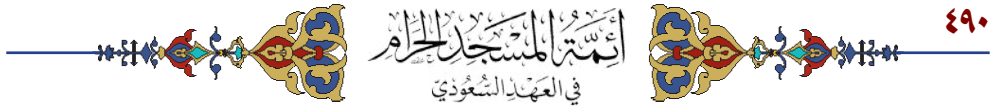 ٤٩٠
أَئِمَّةُ المَسْجِدِ الحَرَامِ
فِي العَهْدِ السُّعُودِيِّ